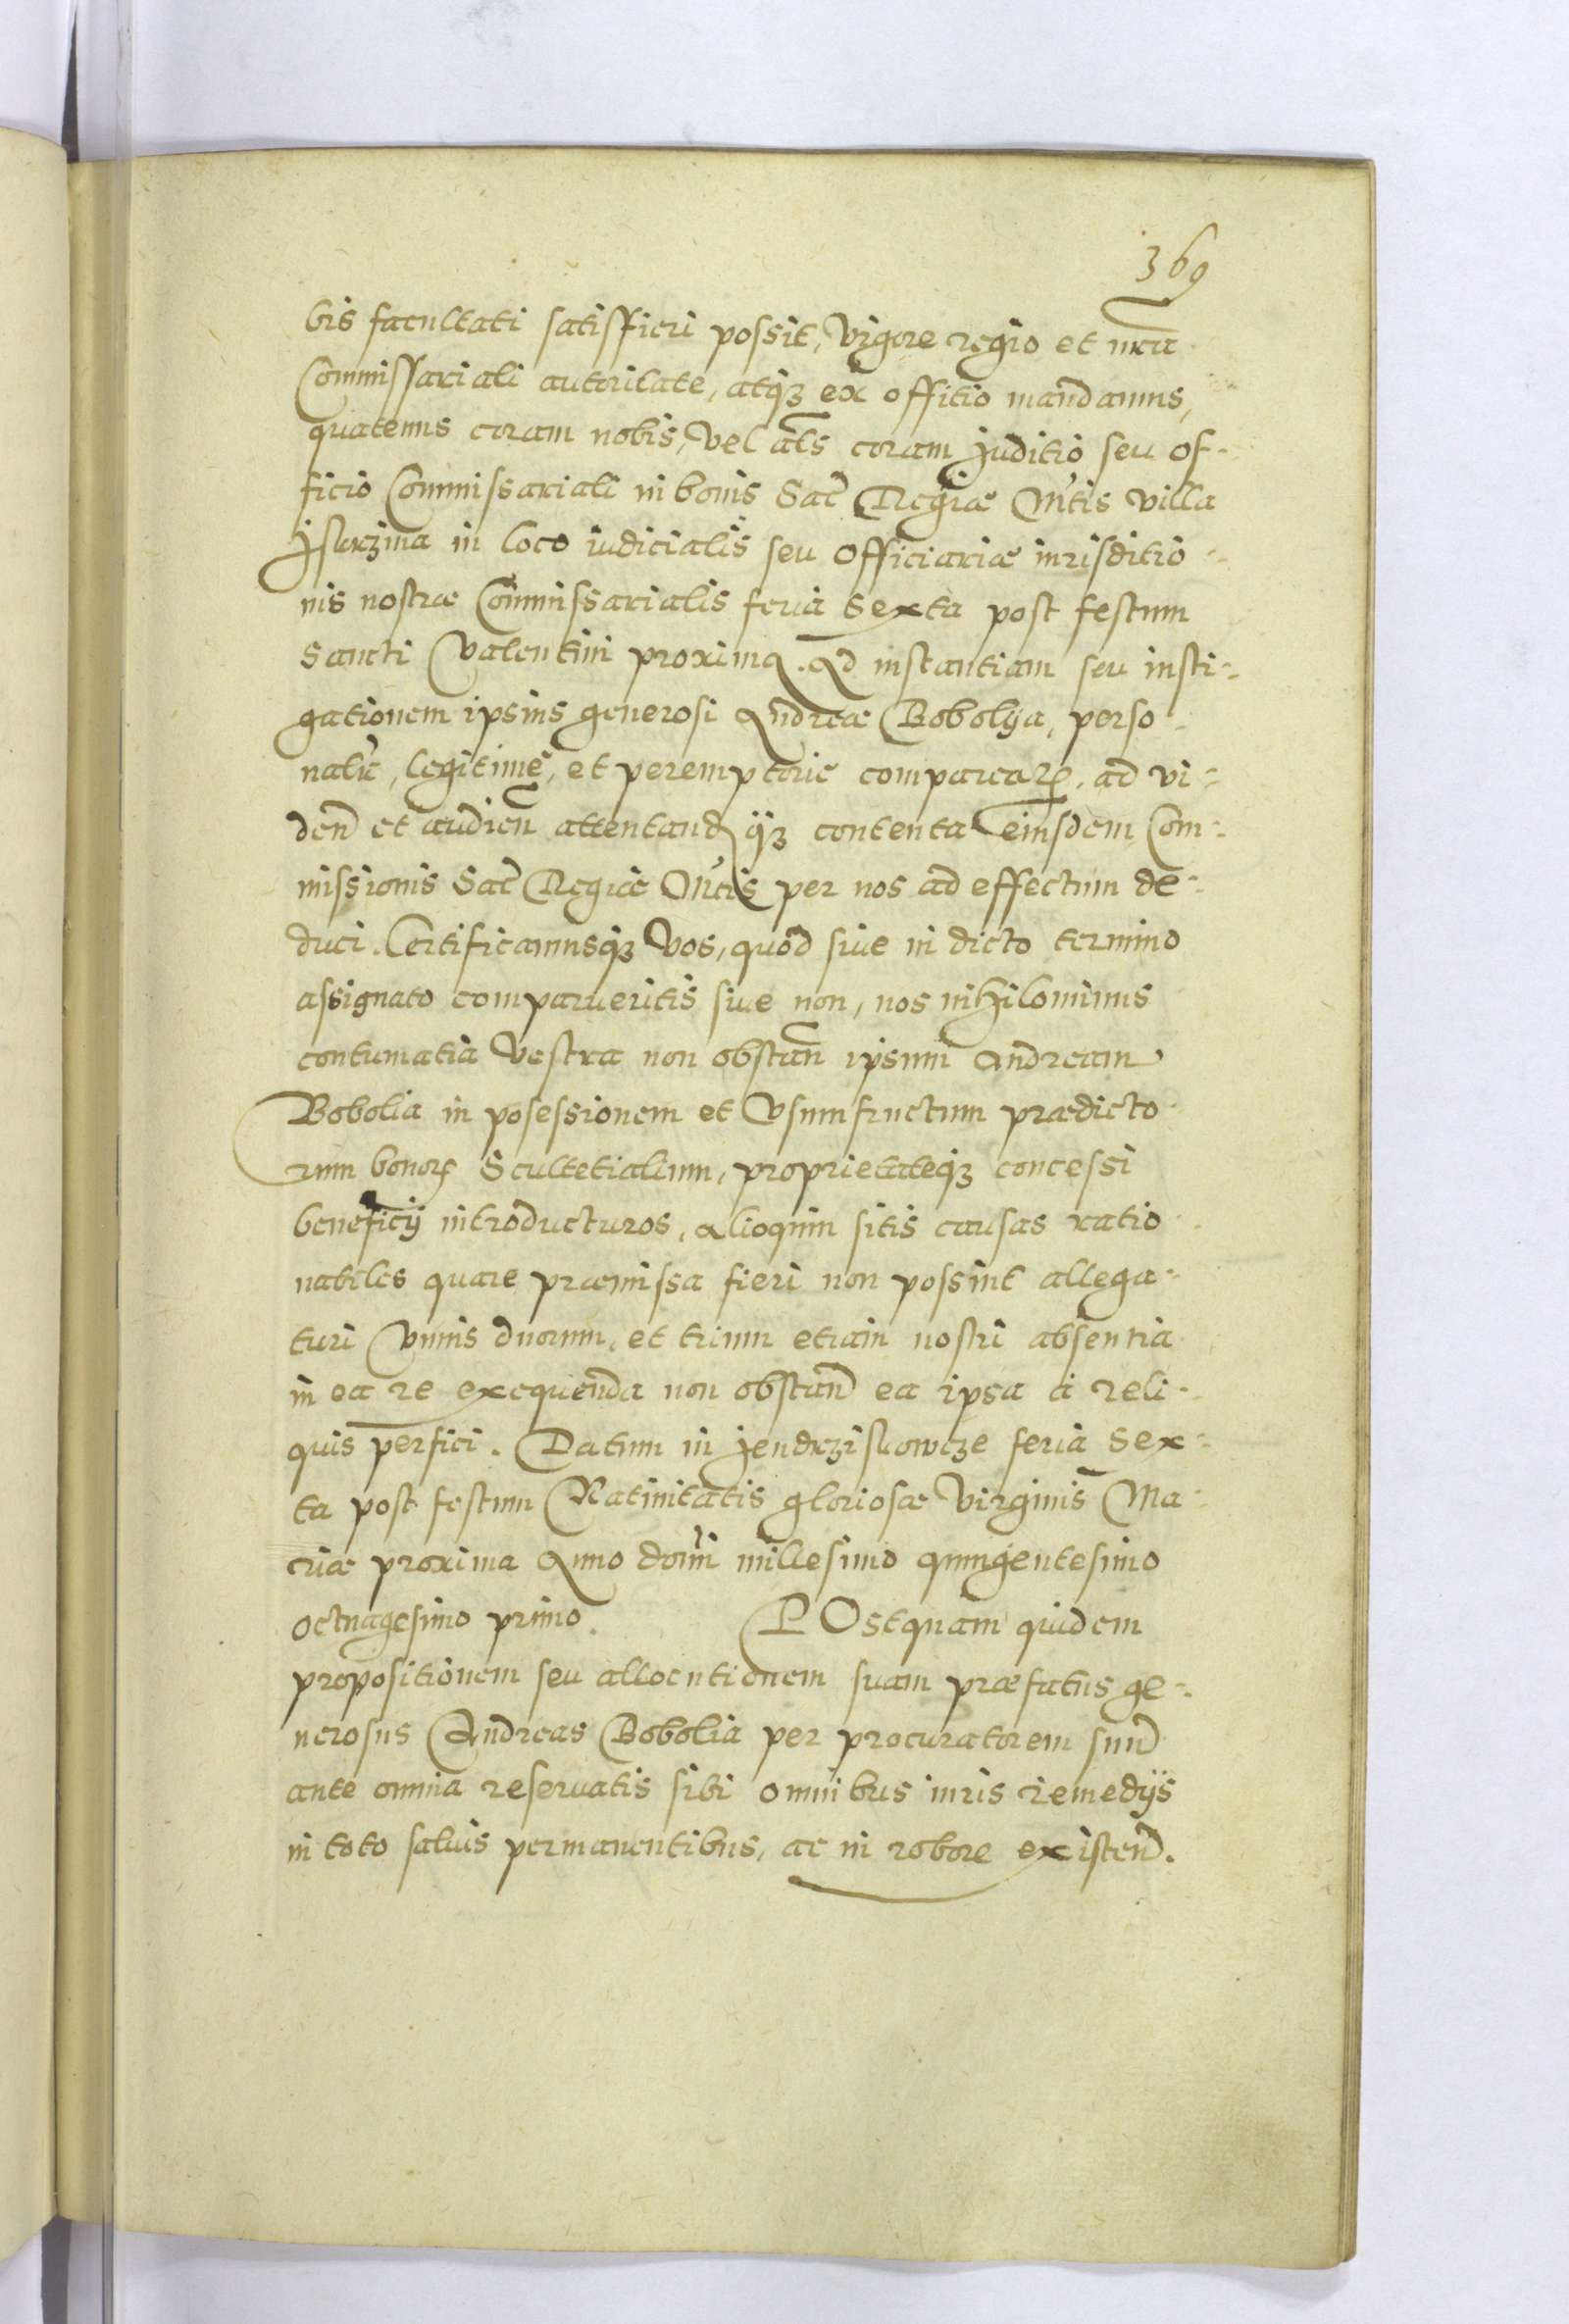 369
bis facultati satisfieri possit, Vigore regio et nrã
Commissariali autoritate, atq3 ex offitio mandamus,
quatenus coram nobis, vel als coram juditio seu of-
ficio Commissariali in bonis Sac Regiæ Mtis villa
in loco iudicialis seu officiariæ iurisditio-
nis nostræ Commissarialis feria Sexta post festum
Sancti Valentini proxima. Ad instantiam seu insti-
gationem ipsius generosi Andreæ Bobolya, perso-
naliť, legitime, et peremptorie compareatp. ad vi-
dend et audiend attentand ijq3 contenta eiusdem Com-
missionis Sac Regiæ Mtis per nos ad effectum de-
duci. Certificamusq3 Vos, quod siue in dicto termino
assignato comparueritis siue non, nos nihilominus
contumatia Vestra non obstan ipsum Andream
Bobolia in posessionem et Vsumfructum prædicto-
rum bonorͫ Scultetialium, proprietateq3 concessi
beneficij introducturos, alioquin sitis causas ratio-
nabiles quare præmissa fieri non possint allega-
turi Vnius duorum, et trium etiam nostri absentia
in ea re exequenda non obstand ea ipsa a reli-
quis perfici. Datum in feria Sex-
ta post festum Natiuitatis gloriosæ Virginis Ma-
riæ proxima Anno domi millesimo quingentesimo
octuagesimo primo. POstquam quidem
propositionem seu allocutionem suam præfatus ge-
nerosus Andreas Bobolia per procuratorem suum
ante omnia reseruatis sibi omnibus iuris remedijs
in toto saluis permanentibus, ac in robore existend.